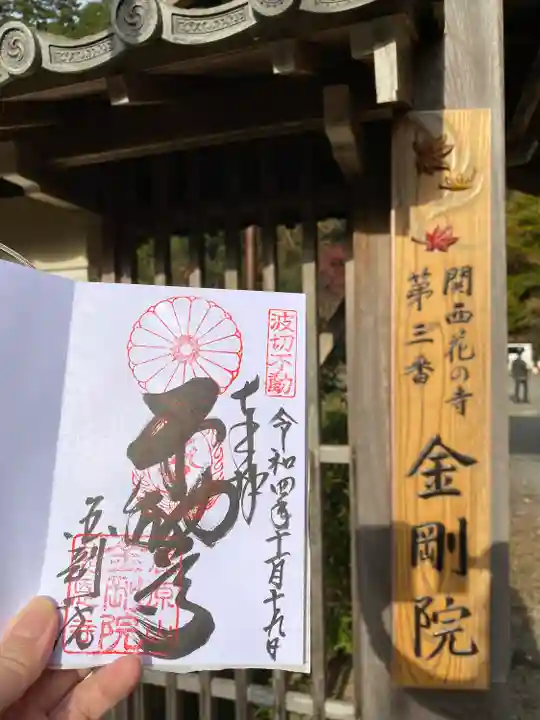 波切不動
奉拝
令和四年十一月十九日
不動尊
金剛院
金剛院
関西花の寺
第三番
金剛院